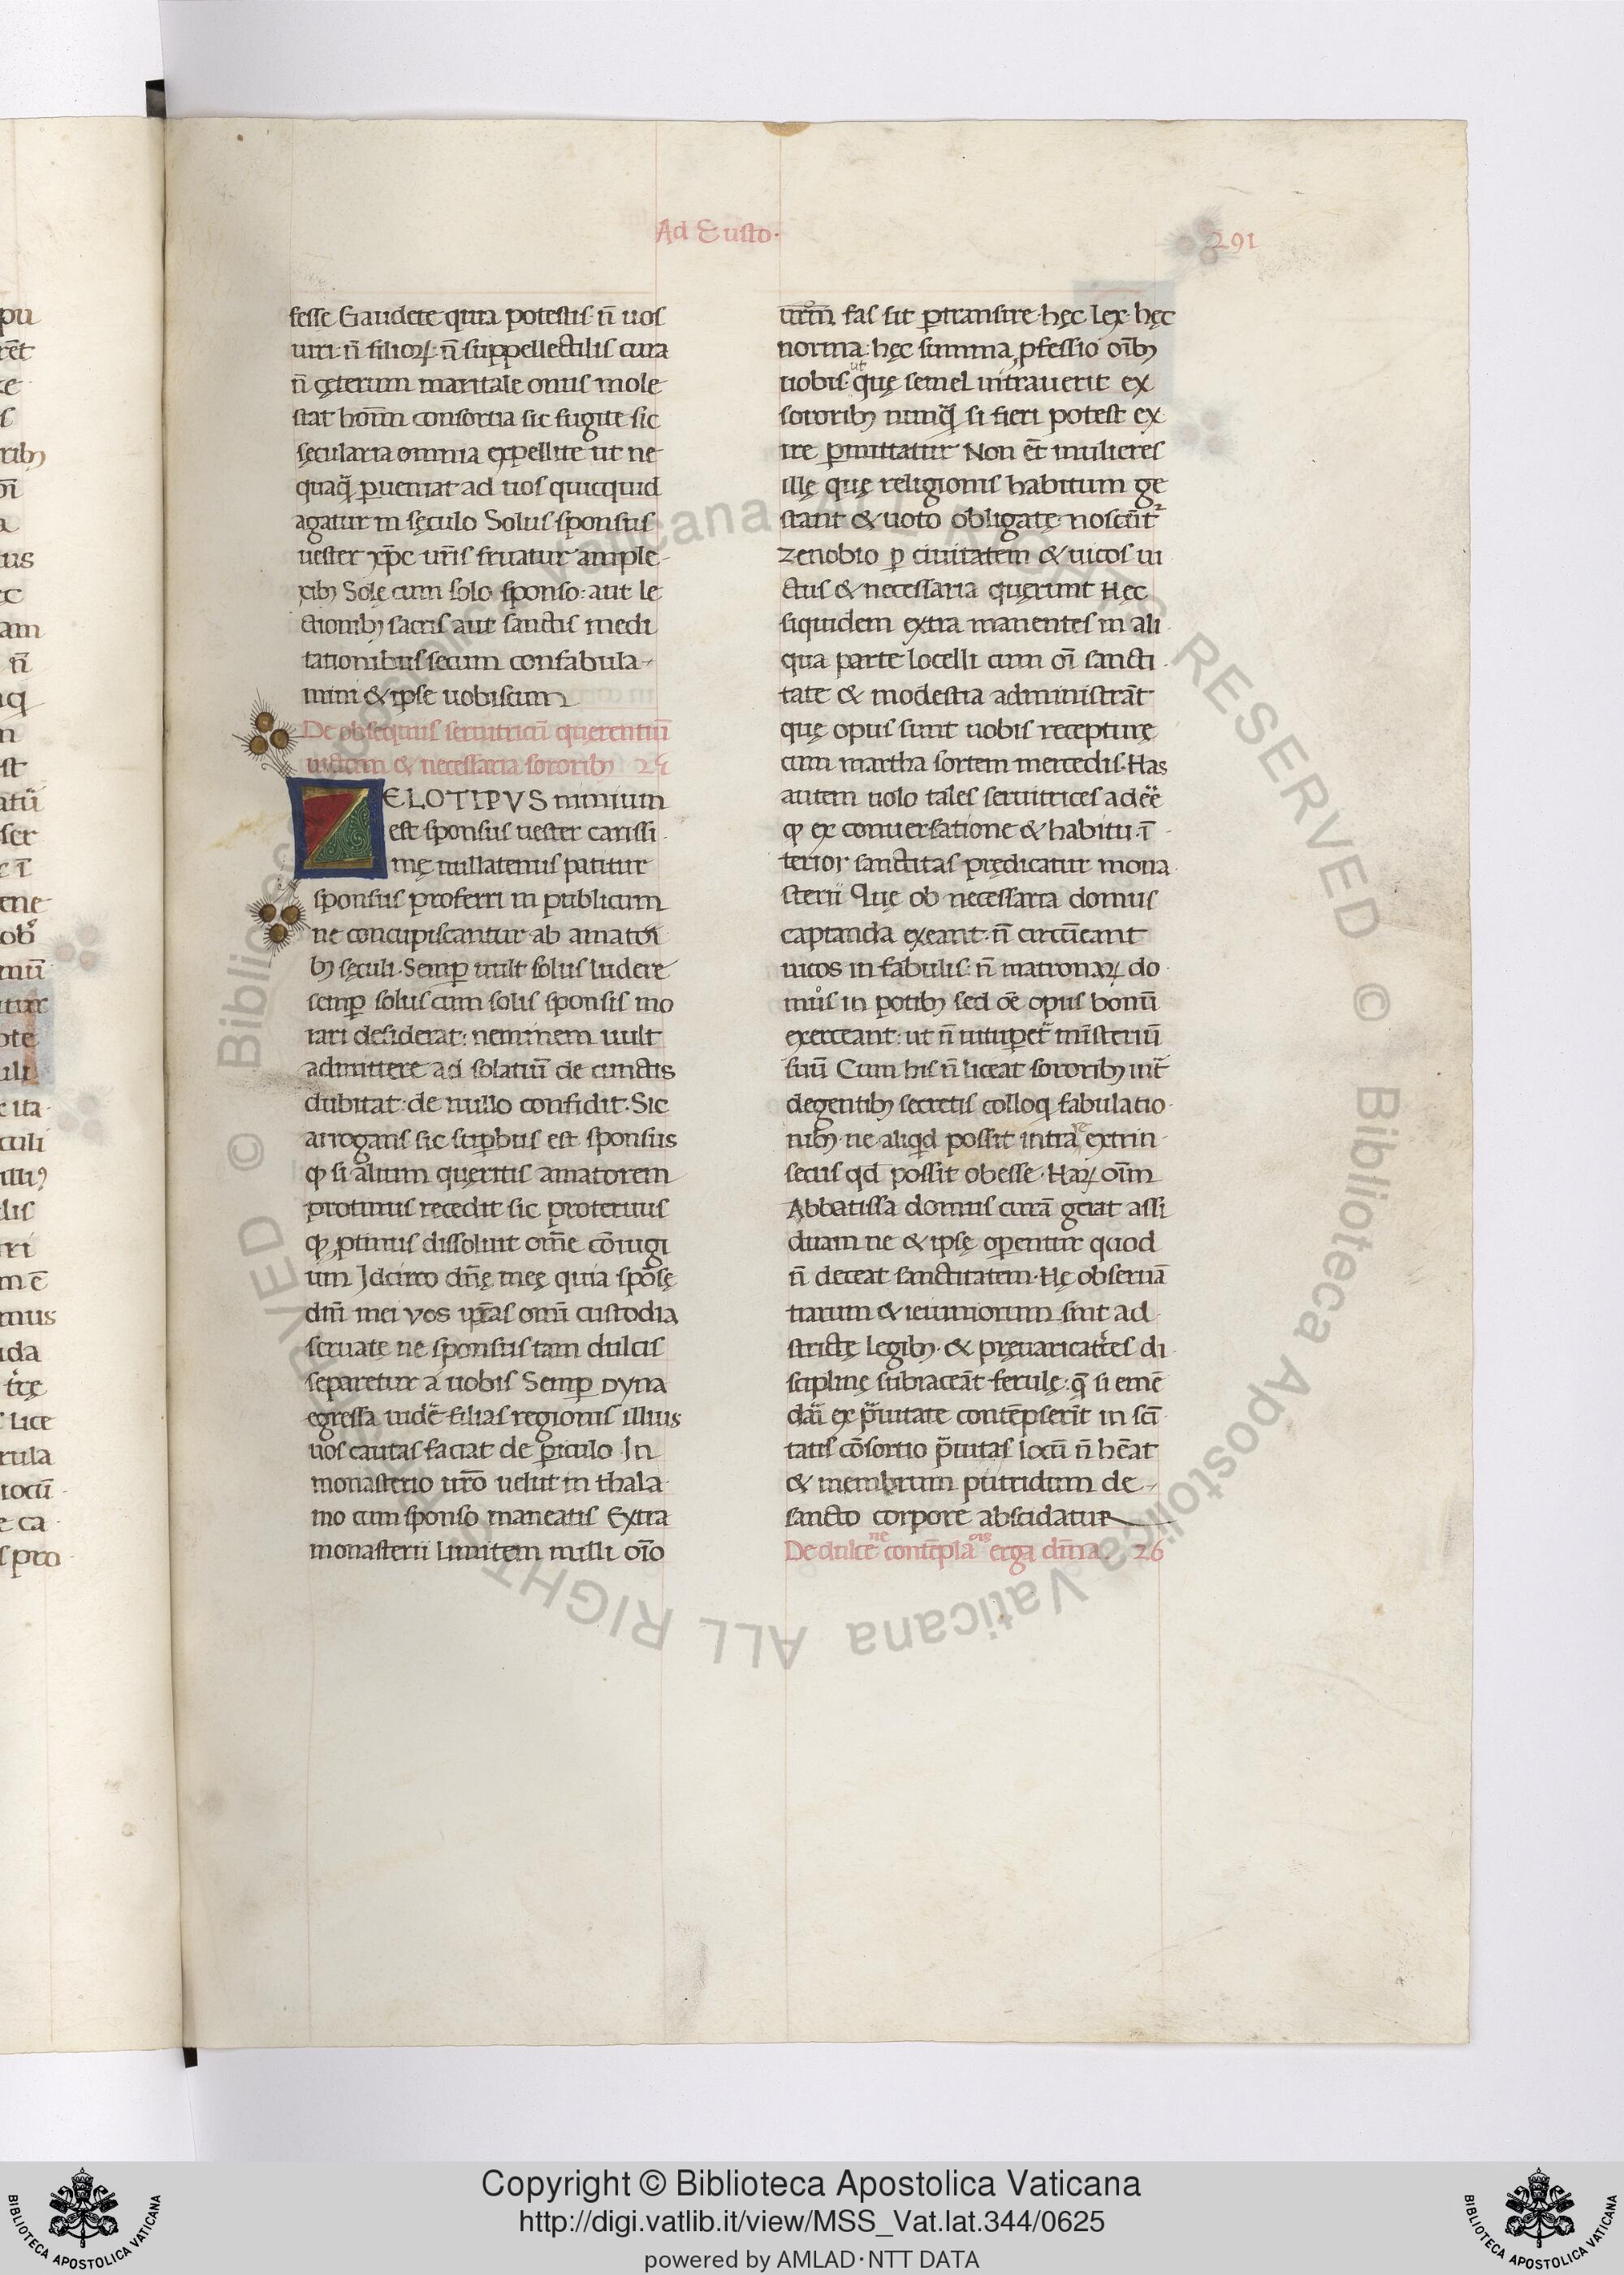 Ad Eusto·
291
fesse Gaudete quia potestis· n̄ uos
uiri· n̄ filioꝝ· n̄ suppellectilis cura
n̄ çęterum maritale onus mole
stat hoīm consortia sic fugite sic
sęcularia omnia expellite ut ne
quaq̄ ꝑueniat ad uos quicquid
agatur in sęculo Solus sponsus
uester xp̄c ur̄is fruatur ample
xibꝫ Solę cum solo sponso: aut le
ctionibꝫ sacris aut sanctis medi
tationibus secum confabula-
mini & ipse uobiscum
De obsequiis seruitricū querentiū
uictum & necessaria sororibꝫ 25
ZELOTIPVS nimium
est sponsus uester carissi
mę nullatenus patitur
sponsus proferri in publicum
ne concupiscantur ab amatori
bꝫ sęculi· Semꝑ uult solus ludere
semꝑ solus cum solis sponsis mo
rari desiderat: neminem uult
admittere ad solatiū de cunctis
dubitat: de nullo confidit· Sic
arrogans sic suꝑbus est sponsus
ꝙ si alium quęritis amatorem
protinus recedit sic proteruus
ꝙ ꝓtinus dissoluit om̄e cōiugi
um Idcirco dn̄ę meę quia spōsę
dn̄i mei vos ip̄as omī custodia
seruate ne sponsus tam dulcis
separetur a uobis Semꝑ Dyna
egressa uidē filias regionis illius
uos cautas faciat de ꝑiculo In
monasterio ur̄o uelut in thala
mo cum sponso maneatis Extra
monasterii limitem nulli oīo
ur̄m fas sit ꝑtransire· hęc lex· hęc
norma: hęc summa ꝓfessio oībꝫ
ut
uobis· quę semel intrauerit ex
sororibꝫ nunq̄ si fieri potest ex
ire ꝑmittatur Non ēt mulieres
illę quę religionis habitum ge
stant & uoto obligatę noscūt᷑
zenobio ꝑ ciuitatem & uicos ui
ctus & necessaria quęrunt Hęc
siquidem extra manentes in ali
qua parte locelli cum oī sancti
tate & modestia administrāt
quę opus sunt uobis recepturę
cum martha sortem mercedis· Has
autem uolo tales seruitrices adeē
ꝙ ex conuersatione & habitu· ī
terior sanctitas prędicatur mona
sterii Quę ob necessaria domus
captanda exeant· n̄ circūeant
uicos in fabulis: n̄ matronaꝝ do
mos in potibꝫ sed oē opus bonū
exerceant: ut n̄ uituꝑet᷑ mīsteriū
suū Cum his n̄ liceat sororibꝫ int᷑
degentibꝫ secretis colloq̄ fabulatio
nibꝫ· ne aliqd possit intrare extrin
secus qd possit obesse· Haꝝ oīm
Abbatissa domus curā gerat assi
duam ne & ipsę operentur quod
n̄ deceat sanctitatem· Hę obseruā
tiarum & ieiuniorum sint ad
strictę legibꝫ· & pręuaricatr̄es di
sciplinę subiaceāt ferulę: q̄ si emē
dari ex prauitate contēpserīt in scī
tatis cōsortio prauitas locū n̄ hēat
& membrum putridum de-
sancto corpore abscidatur
De dulce contēplatione erga dn̄m. 26
Copyright © Biblioteca Apostolica Vaticana
http://digi.vatlib.it/view/MSS_Vat.lat.344/0625
powered by AMLAD·NTT DATA
BIBLIOTECA APOSTOLICA VATICANA
BIBLIOTECA APOSTOLICA VATICANA
© Biblioteca Apostolica Vaticana ALL RIGHTS RESERVED © Biblioteca Apostolica Vaticana ALL RIGHTS RESERVED